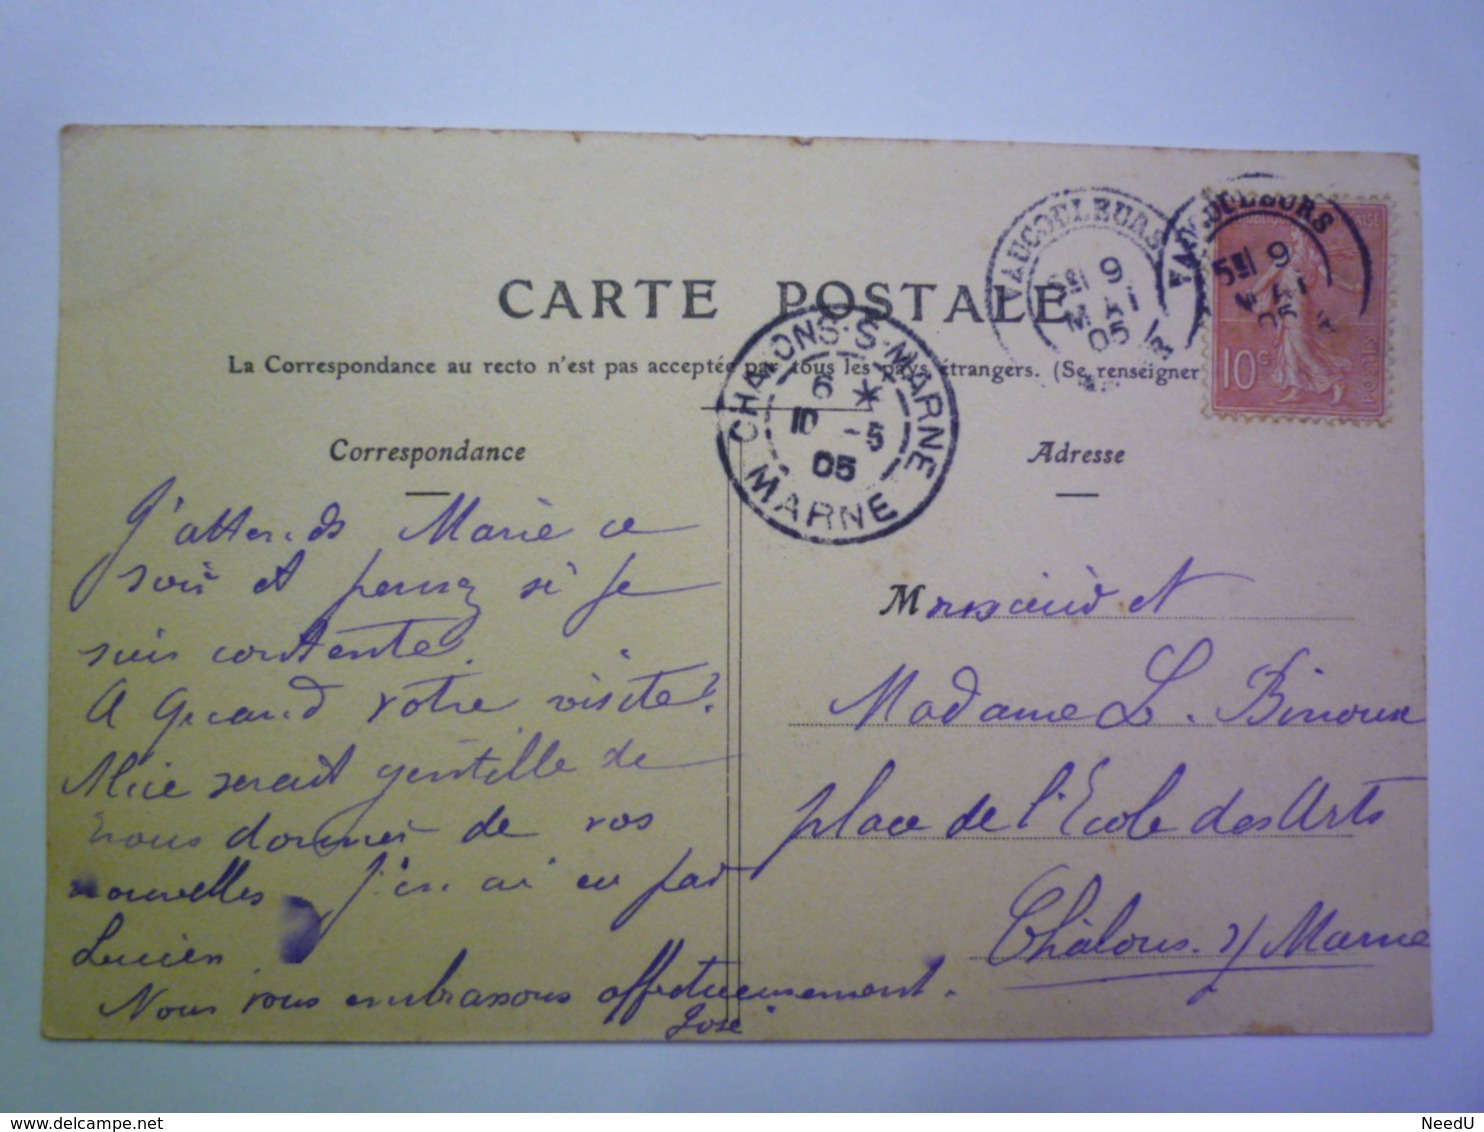 CARTE POSTALE
La Correspondance au recto n'est pas acceptée par tous les pays étrangers. (Se renseigner
Correspondance
J'attends Marie ce
soir et pensez si je
suis contente.
A quand votre visite?
Alice serait gentille de
nous donner de vos
nouvelles J'en ai eu par
Lucien
Nous vous embrassons affectueusement.
José
CHALONS-S-MARNE
6 *
10 -5
05
MARNE
VAUCOULEURS
5E 9
MAI
05
VAUCOULEURS
5E 9
MAI
05
10c
POSTES
Adresse
Monsieur et
Madame L. Binoux
place de l'Ecole des Arts
Châlons s/ Marne
NeedU
www.delcampe.net